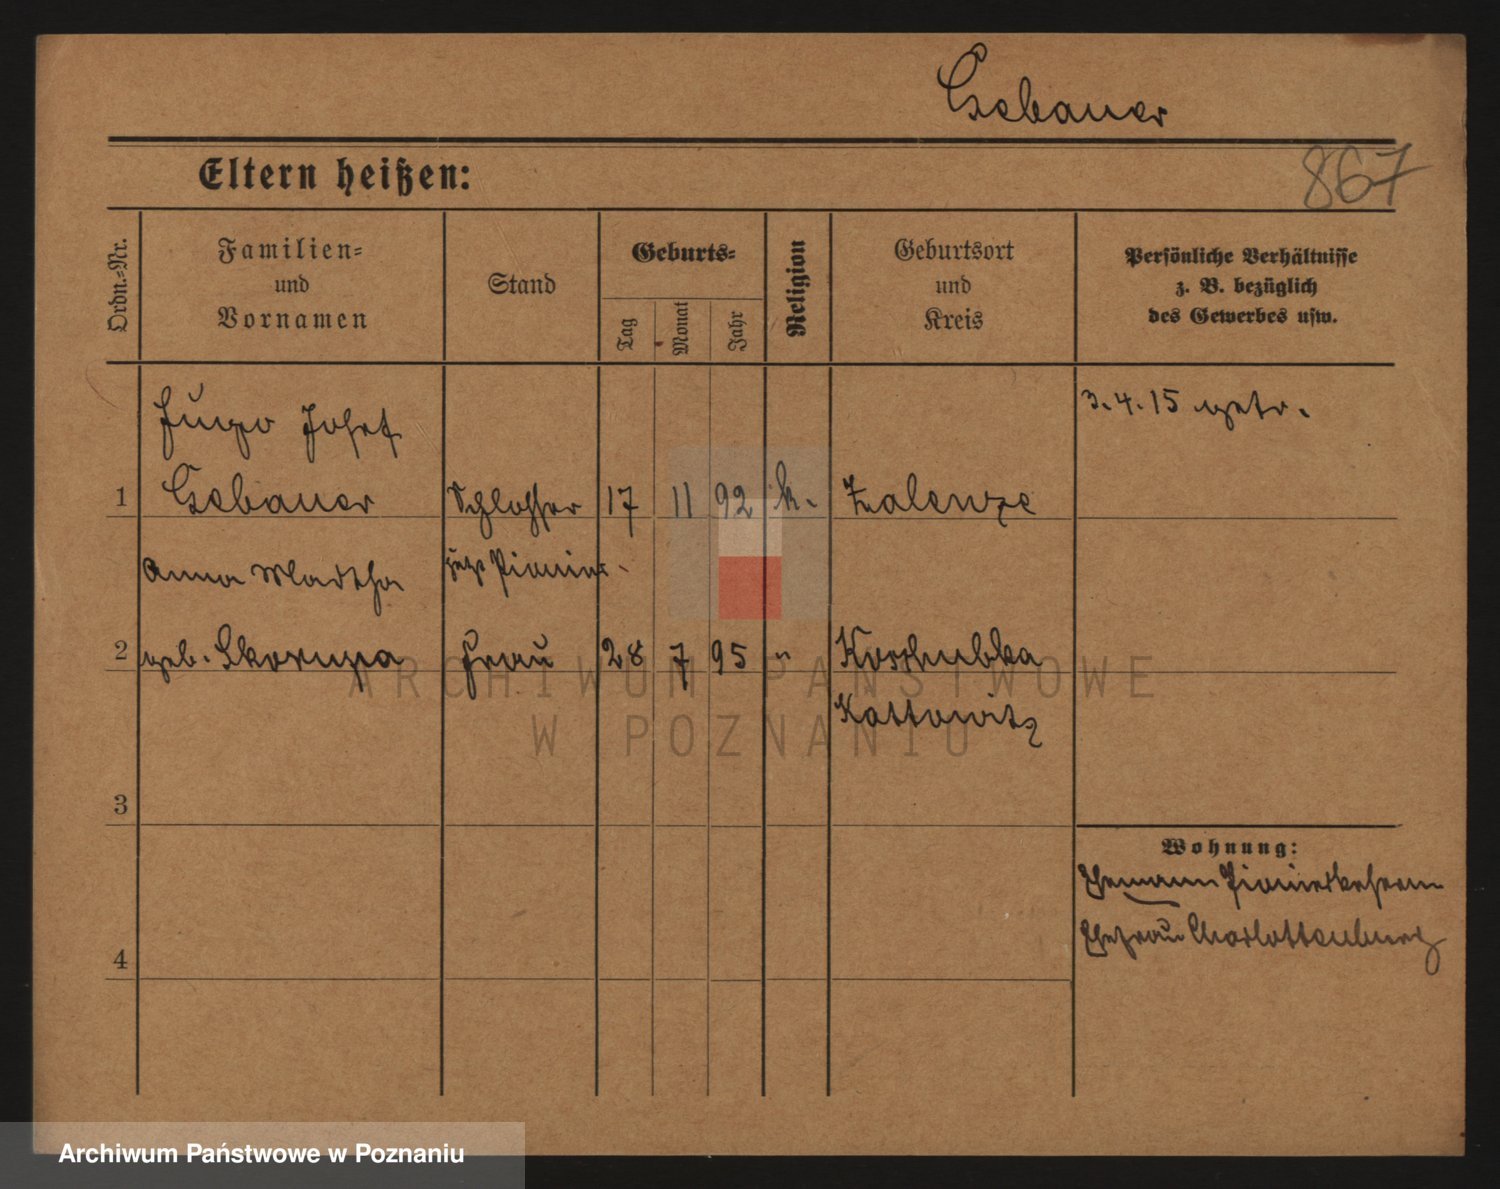 Gebauer
867
Eltern heißen:
Ordn.-Nr.
Familien-
und
Vornamen
Stand
Geburts-
Tag
Monat
Jahr
Religion
Geburtsort
und
Kreis
Persönliche Verhältnisse
z. B. bezüglich
des Gewerbes usw.
Hugo Josef
3.4.15 getr.
1 Gebauer Schlosser 17 11 92 k. Zalenze
Anna Martha Pionier
2 geb. Skorupa Frau 28 7 95 "
Kattowitz
3
Wohnung:
Ehemann
Ehefrau Charlottenburg
4
ARCHIWUM PAŃSTWOWE
W POZNANIU
Archiwum Państwowe w Poznaniu